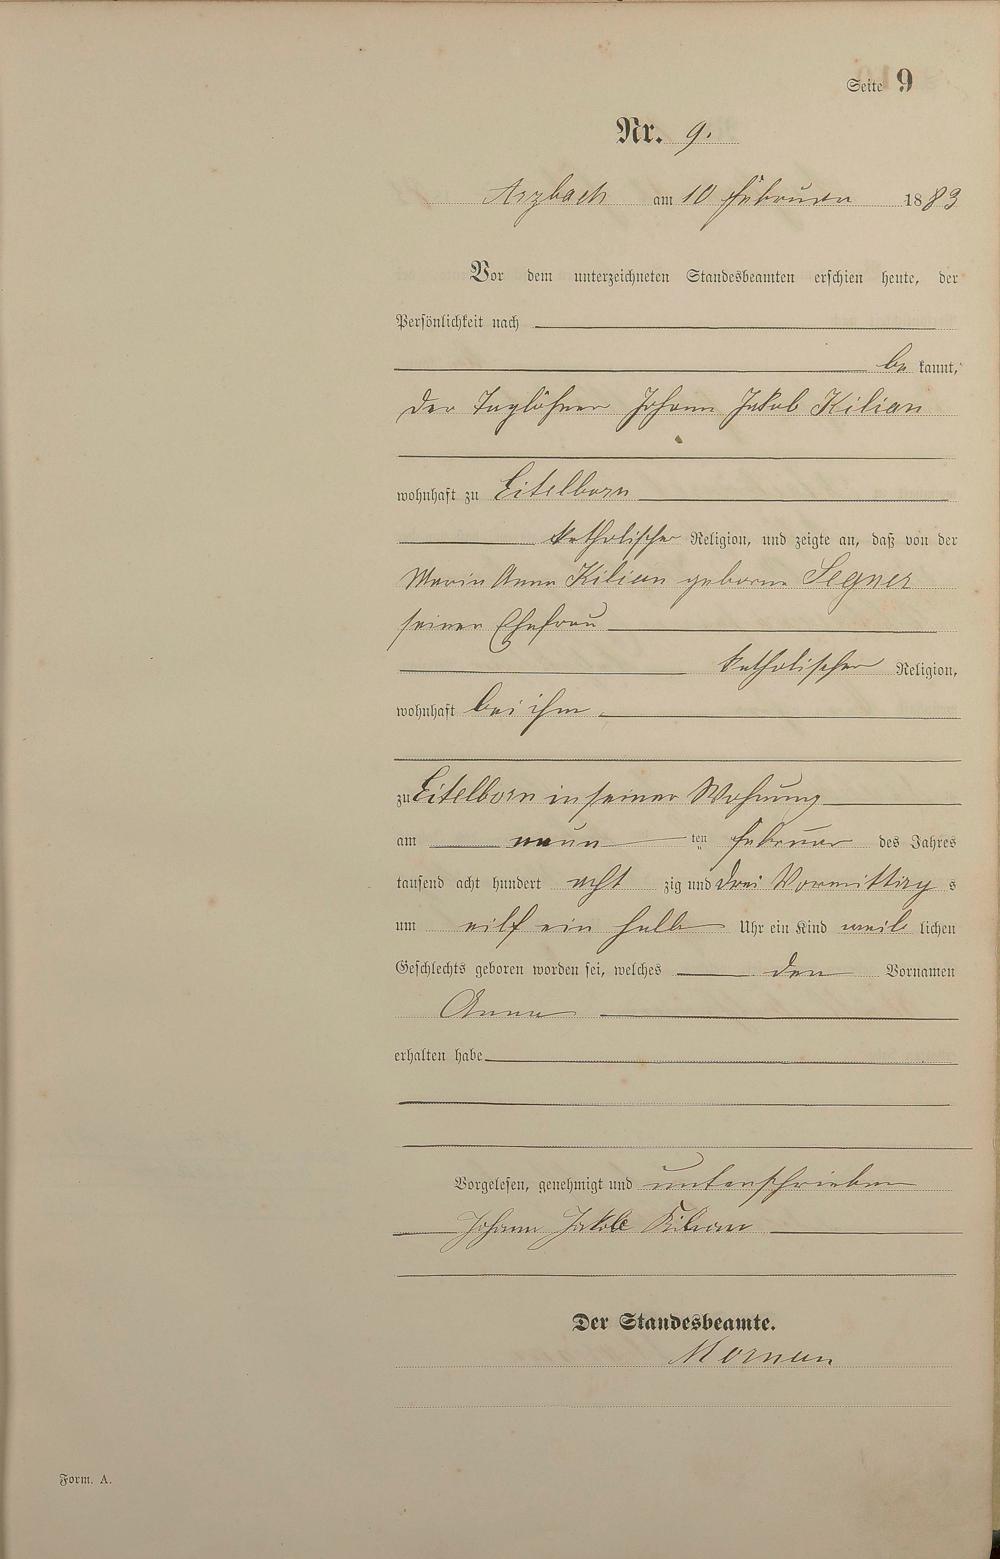 Seite 9
Nr. 9.
Arzbach am 10 Februar 1883
Vor dem unterzeichneten Standesbeamten erschien heute, der
Persönlichkeit nach
be kannt,
der Taglöhner Johann Jakob Kilian
wohnhaft zu Eitelborn
katholischer Religion, und zeigte an, daß von der
Maria Anna Kilian geborne Segner
seiner Ehefrau
katholischer Religion,
wohnhaft bei ihm
zu Eitelborn in seiner Wohnung
am neun ten Februar des Jahres
tausend acht hundert acht zig und drei Vormittag s
um eilf ein halb Uhr ein Kind weib lichen
Geschlechts geboren worden sei, welches den Vornamen
Anna
erhalten habe
Vorgelesen, genehmigt und unterschrieben
Johann Jakob Kilian
Der Standesbeamte.
Form. A.